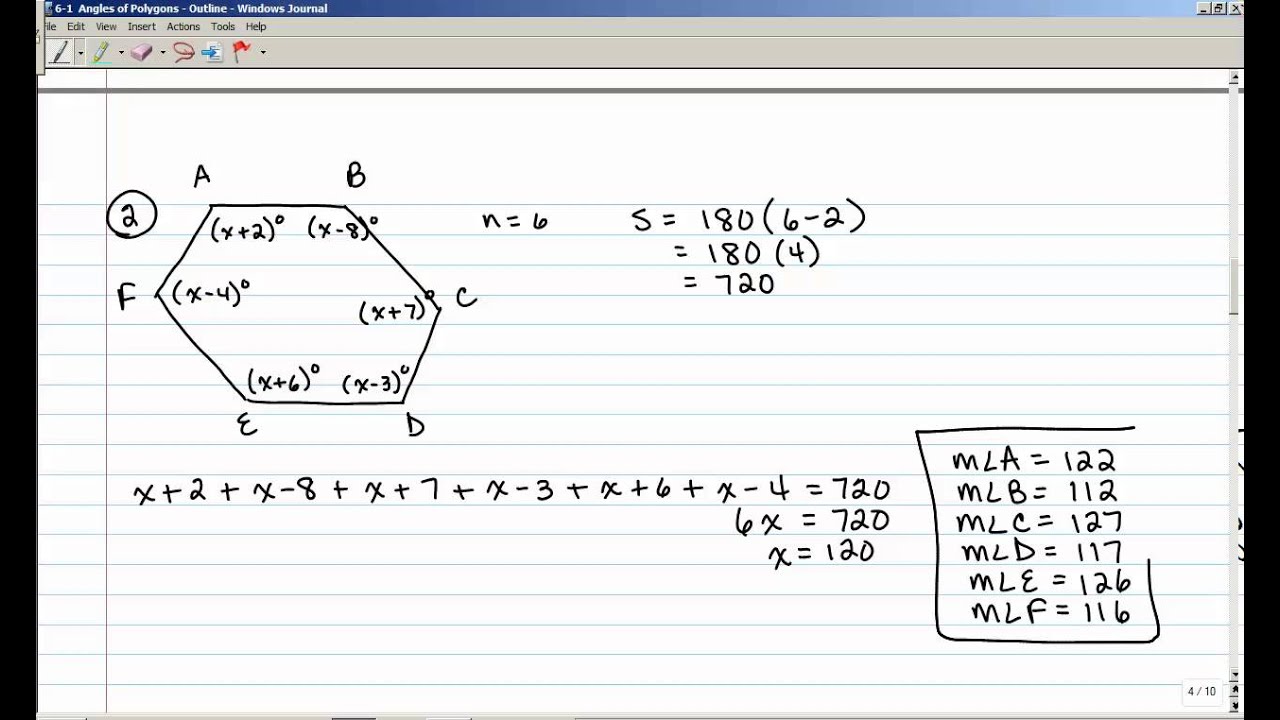 6-1 Angles of Polygons - Outline - Windows Journal
File Edit View Insert Actions Tools Help
A B
2
(x+2)° (x-8)°
n = 6
S = 180(6-2)
= 180(4)
= 720
F (x-4)°
(x+7)° C
(x+6)° (x-3)°
E D
x+2 + x-8 + x+7 + x-3 + x+6 + x-4 = 720
6x = 720
x = 120
m∠A = 122
m∠B = 112
m∠C = 127
m∠D = 117
m∠E = 126
m∠F = 116
4 / 10